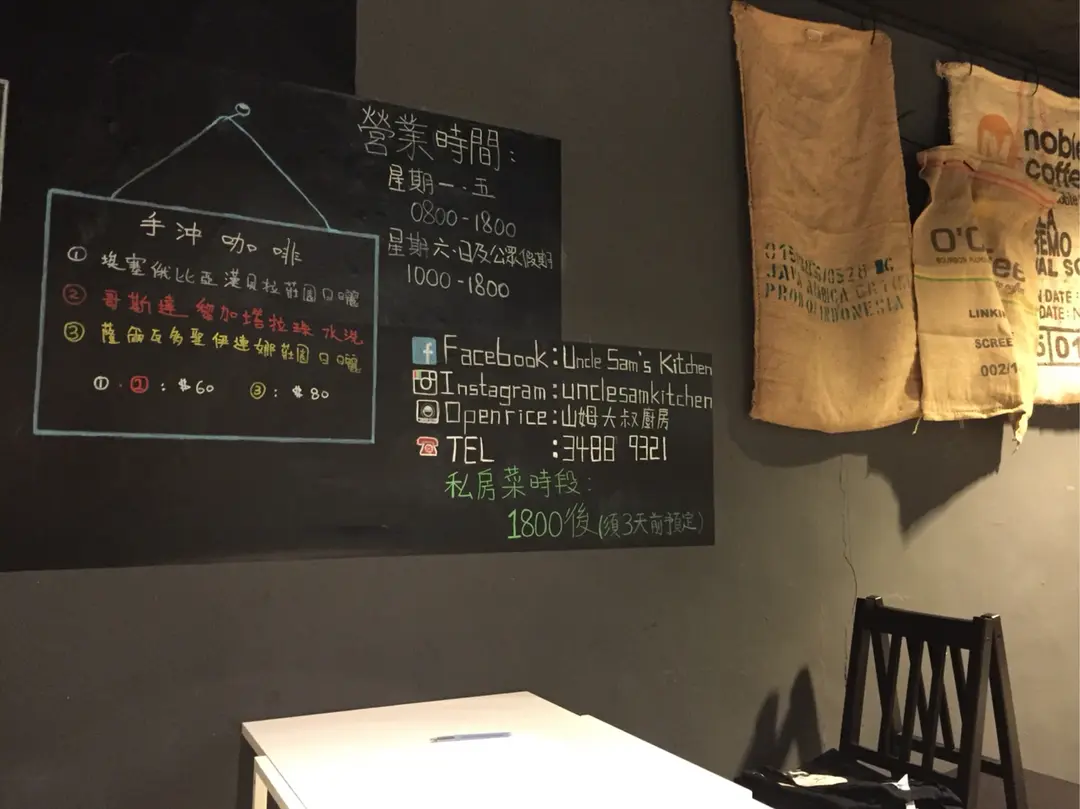 手沖咖啡
① 埃塞俄比亞漢貝拉莊園日曬
② 哥斯達黎加塔拉珠水洗
③ 薩爾瓦多聖伊達娜莊園日曬
①.②: $60 ③: $80
營業時間:
星期一.五
0800-1800
星期六.日及公眾假期
1000-1800
Facebook:Uncle Sam's Kitchen
Instagram:unclesamkitchen
Openrice:山姆大叔廚房
TEL :3488 9321
私房菜時段:
1800後(須3天前預定)
JAVA ARABICA
INDONESIA
O'C
LINKIN
SCREE
002/1
noble
coffe